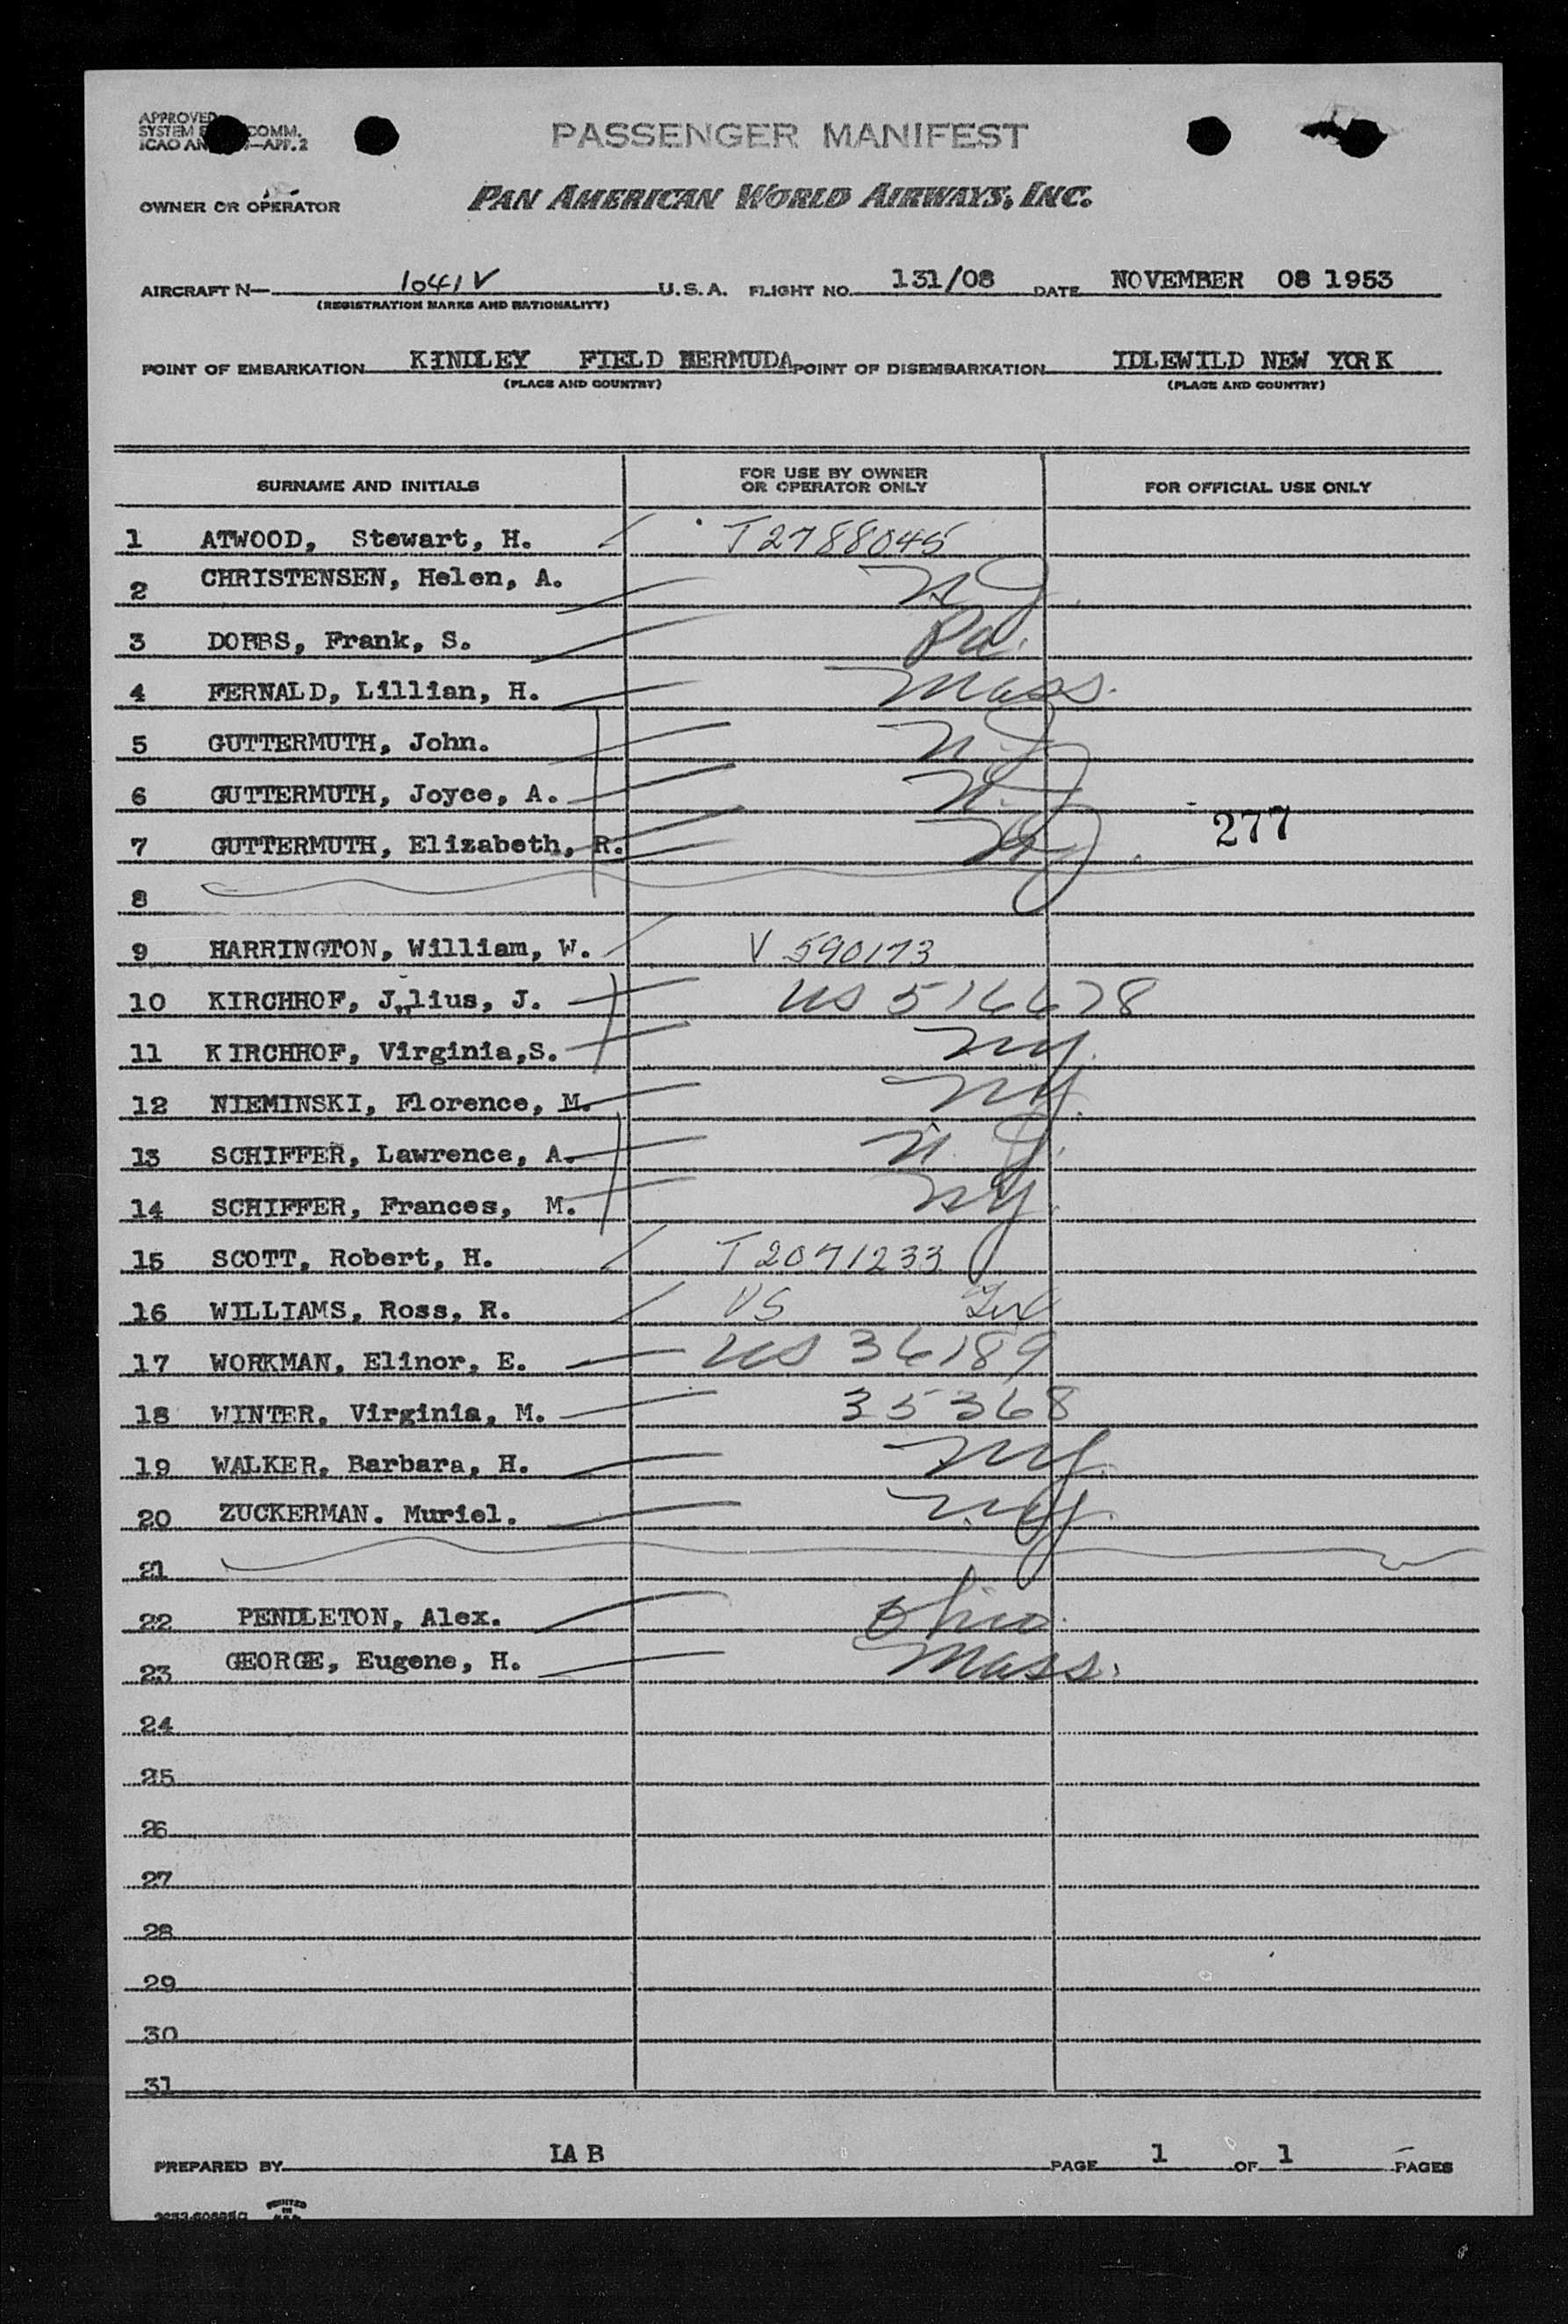 APPROVED
SYSTEM COMM.
ICAO AN —APP. 2
PASSENGER MANIFEST
OWNER OR OPERATOR PAN AMERICAN WORLD AIRWAYS, INC.
AIRCRAFT N— 1041V U.S.A. FLIGHT NO. 131/08 DATE NOVEMBER 08 1953
(REGISTRATION MARKS AND NATIONALITY)
POINT OF EMBARKATION KINDLEY FIELD BERMUDA POINT OF DISEMBARKATION IDLEWILD NEW YORK
(PLACE AND COUNTRY) (PLACE AND COUNTRY)
SURNAME AND INITIALS FOR USE BY OWNER OR OPERATOR ONLY FOR OFFICIAL USE ONLY
1 ATWOOD, Stewart, H. T2788045
2 CHRISTENSEN, Helen, A. N.J.
3 DOBBS, Frank, S. Pa.
4 FERNALD, Lillian, H. Mass.
5 GUTTERMUTH, John. N.J.
6 GUTTERMUTH, Joyce, A. N.J.
7 GUTTERMUTH, Elizabeth, R. NJ. 277
8
9 HARRINGTON, William, W. V 590173
10 KIRCHHOF, Julius, J. US 516678
11 KIRCHHOF, Virginia,S. NY.
12 NIEMINSKI, Florence, M. NY.
13 SCHIFFER, Lawrence, A. N.J.
14 SCHIFFER, Frances, M. NY.
15 SCOTT, Robert, H. T2071233
16 WILLIAMS, Ross, R. US
17 WORKMAN, Elinor, E. US 36189
18 WINTER, Virginia, M. 35368
19 WALKER, Barbara, H. NY.
20 ZUCKERMAN. Muriel. N.Y.
21
22 PENDLETON, Alex. Ohio.
23 GEORGE, Eugene, H. Mass.
24
25
26
27
28
29
30
31
PREPARED BY IAB PAGE 1 OF 1 PAGES
PRINTED IN